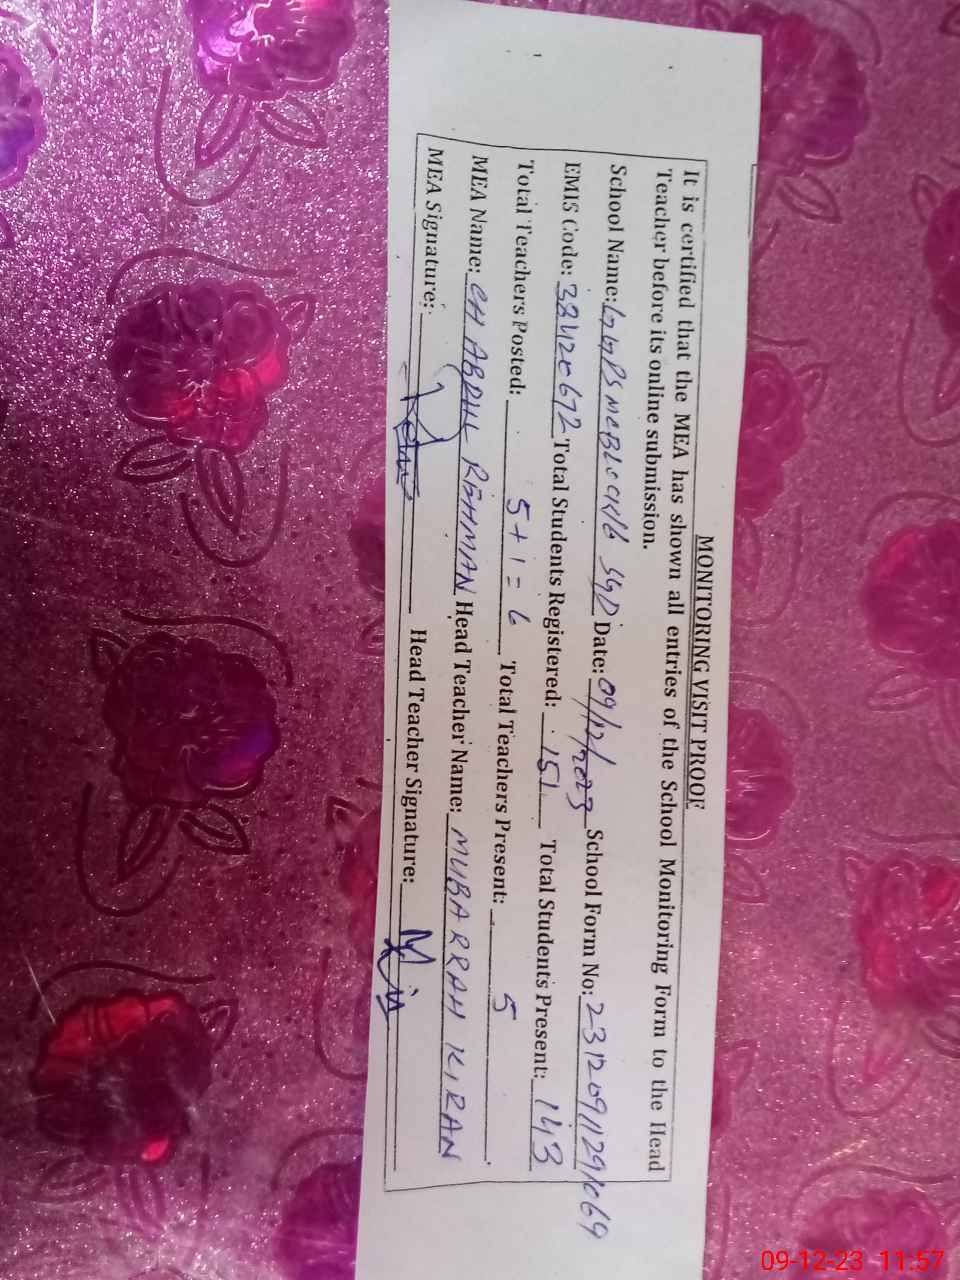 MONITORING VISIT PROOF
It is certified that the MEA has shown all entries of the School Monitoring Form to the Head
Teacher before its online submission.
School Name: GGPS MC BLOCK 16 SGD Date: 09/12/2023 School Form No: 23120911291069
EMIS Code: 38420672 Total Students Registered: 151 Total Students Present: 143
Total Teachers Posted: 5+1=6 Total Teachers Present: 5
MEA Name: CH ABDUL REHMAN Head Teacher Name: MUBARRAH KIRAN
MEA Signature: Head Teacher Signature:
09-12-23 11:57